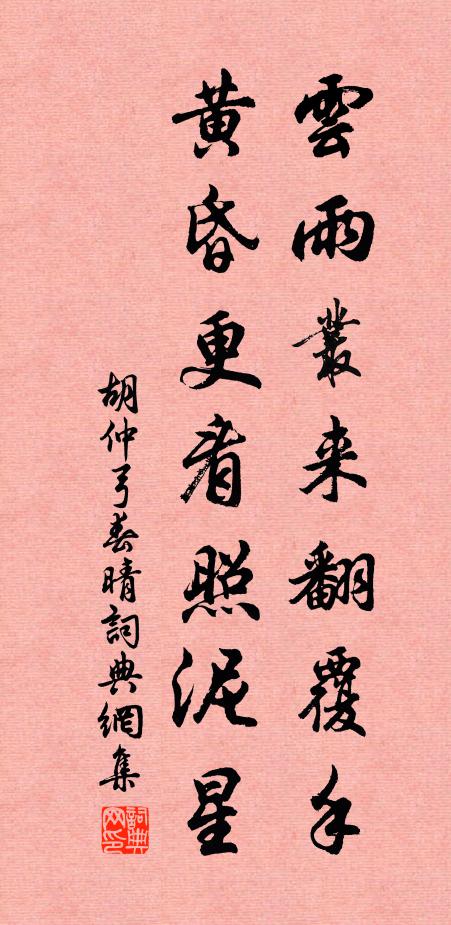 雲雨叢来翻覆手
黄昏更看照泥星
胡仲弓春晴詞典網集
詞典網印